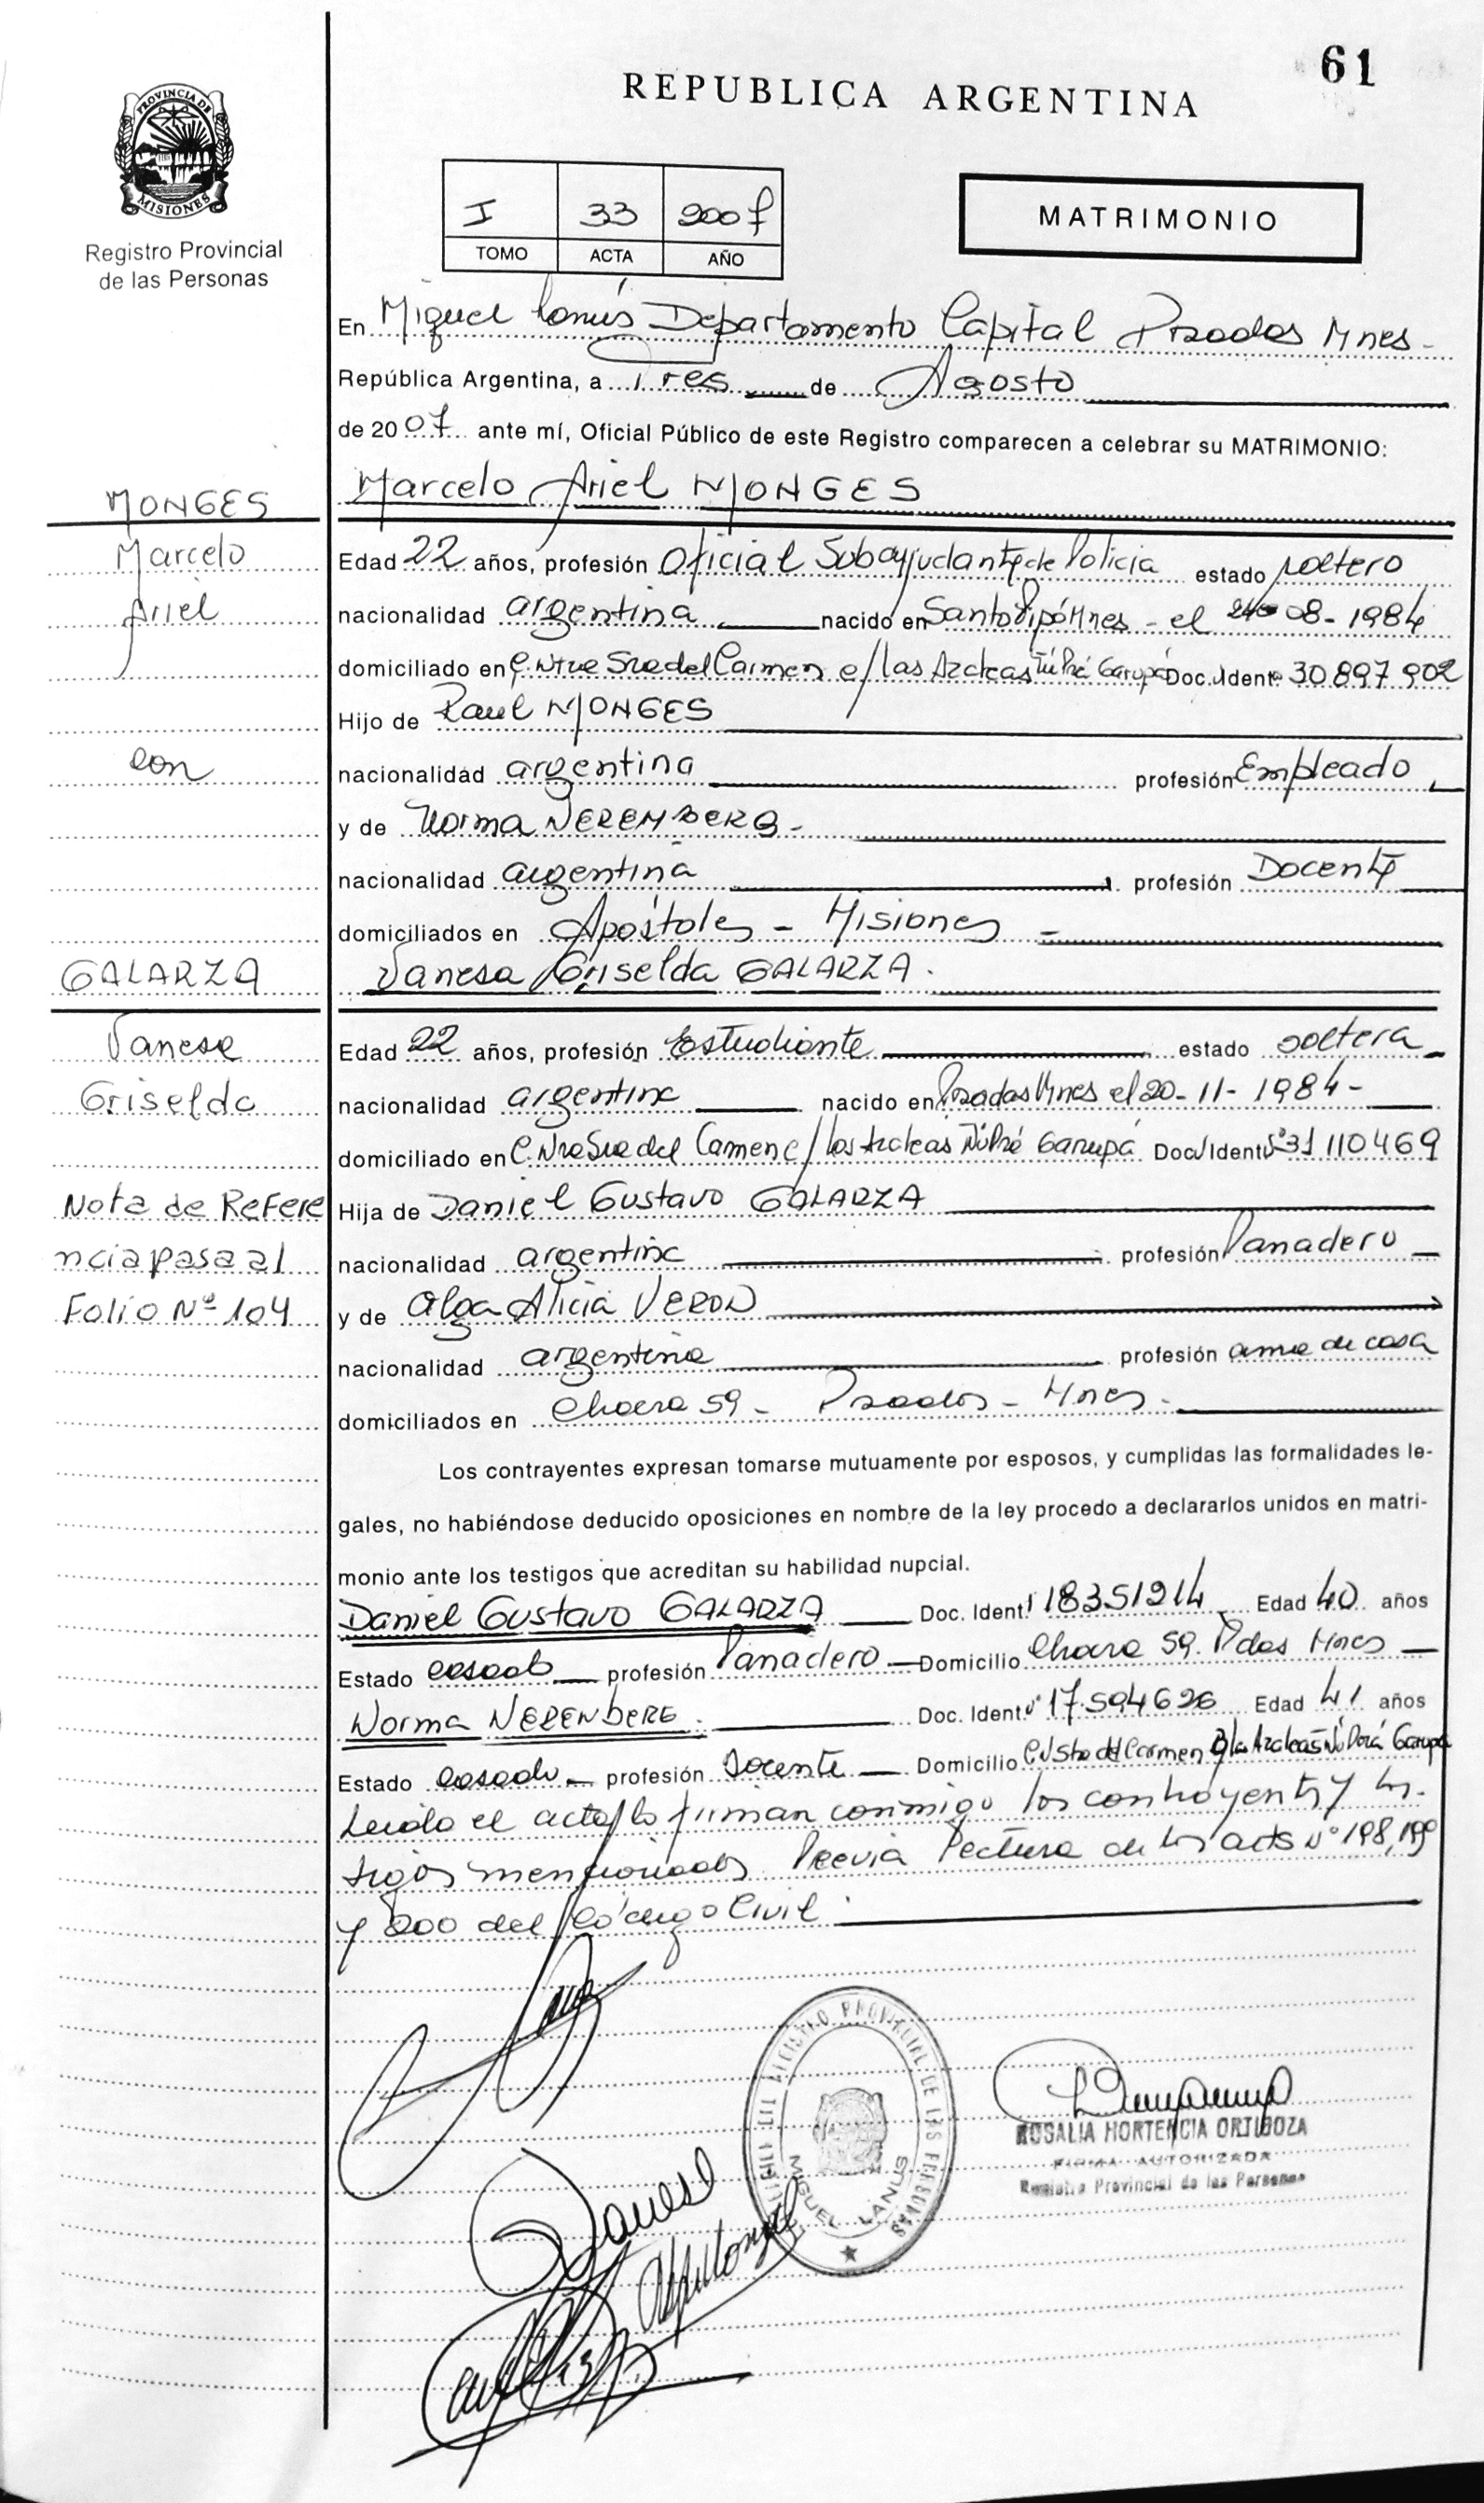 61
REPUBLICA ARGENTINA
PROVINCIA DE
MISIONES
Registro Provincial
de las Personas
I 33 2007
TOMO ACTA AÑO
MATRIMONIO
En Miguel Lanús Departamento Capital Posadas Mnes -
República Argentina, a Tres de Agosto
de 2007 ante mí, Oficial Público de este Registro comparecen a celebrar su MATRIMONIO:
MONGES
Marcelo Ariel MONGES
Marcelo
Edad 22 años, profesión Oficial Subayudante de Policia estado soltero
Ariel
nacionalidad argentina nacido en Santo Pipó Mnes - el 08 - 1984
domiciliado en C. Ntra Sra del Carmen e/ las Azaleas Garupá Doc. Ident. 30.897.902
Hijo de Raul MONGES
con
nacionalidad argentina profesión Empleado
y de Norma NEREMBERG -
nacionalidad argentina profesión Docente
domiciliados en Apóstoles - Misiones -
GALARZA
Vanesa Griselda GALARZA.
Vanesa
Edad 22 años, profesión Estudiante estado soltera
Griselda
nacionalidad argentina nacido en Posadas Mnes el 20 - 11 - 1984 -
domiciliado en C. Ntra Sra del Carmen e/ las Azaleas Garupá Doc. Ident. Nº 31 110469
Nota de Refere
Hija de Daniel Gustavo GALARZA
ncia pasa al
nacionalidad argentina profesión Panadero
Folio Nº 104
y de Olga Alicia VERON
nacionalidad argentina profesión ama de casa
domiciliados en Chacra 59 - Posadas - Mnes -
Los contrayentes expresan tomarse mutuamente por esposos, y cumplidas las formalidades le-
gales, no habiéndose deducido oposiciones en nombre de la ley procedo a declararlos unidos en matri-
monio ante los testigos que acreditan su habilidad nupcial.
Daniel Gustavo GALARZA Doc. Ident. 18351214 Edad 40 años
Estado casado profesión Panadero Domicilio Chacra 59. Pdas Mnes
Norma NERENBERG. Doc. Ident. Nº 17.594626 Edad 41 años
Estado casado profesión Docente Domicilio del Carmen e/ las Azaleas Garupá
Leida el acta, lo firman conmigo los contrayentes y tes-
tigos mencionados. Previa lectura de los arts Nº 198, 199
y 200 del Código Civil.
REGISTRO PROVINCIAL DE LAS PERSONAS
MIGUEL LANUS
Vanesa
ROSALIA HORTENCIA ORTIGOZA
FIRMA AUTORIZADA
Registro Provincial de las Personas